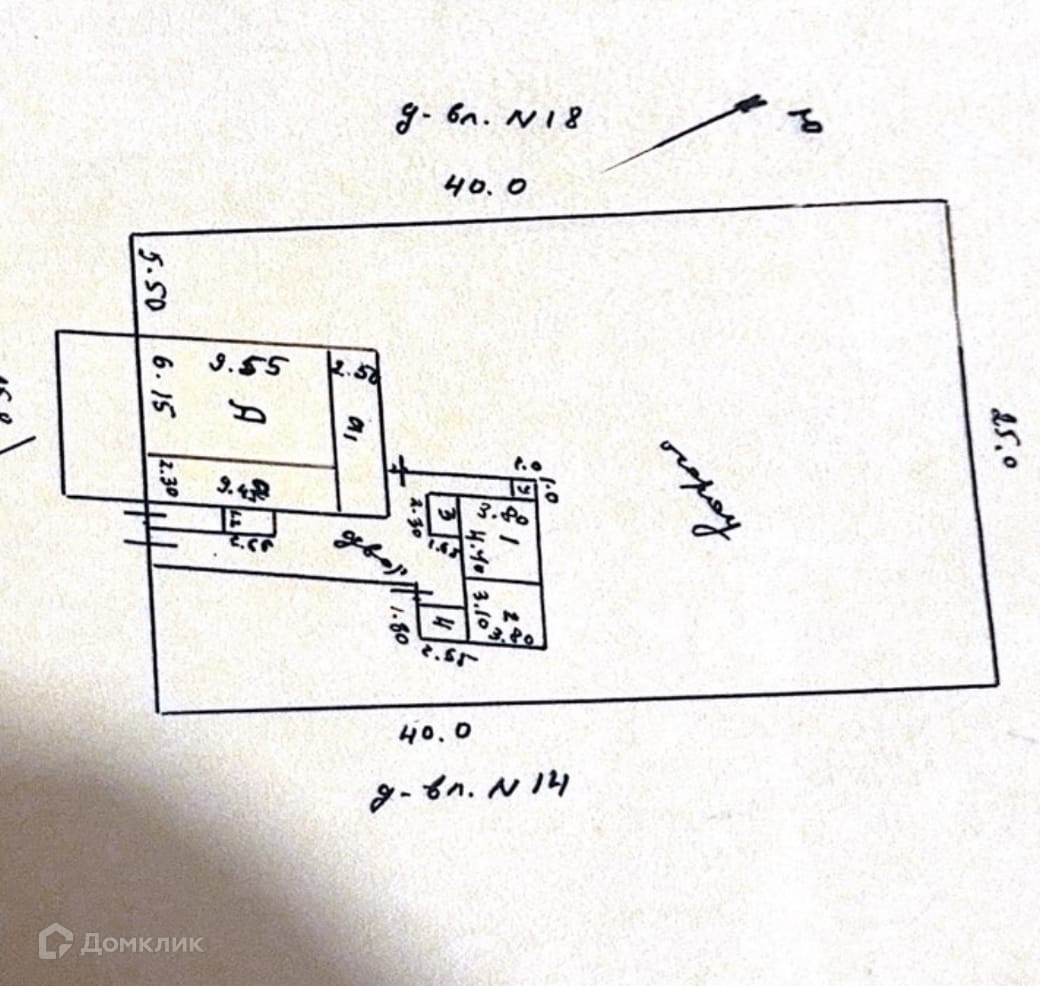 д-вл. N 18
Ю
40.0
5.50
9.55
2.50
6.15
А
а1
25.0
2.30
а
огород
2.0
1.0
У
3.80
3
2.30
1
4.40
двор
2
3.10
3.80
4
1.80
2.55
40.0
д-вл. N 14
Домклик